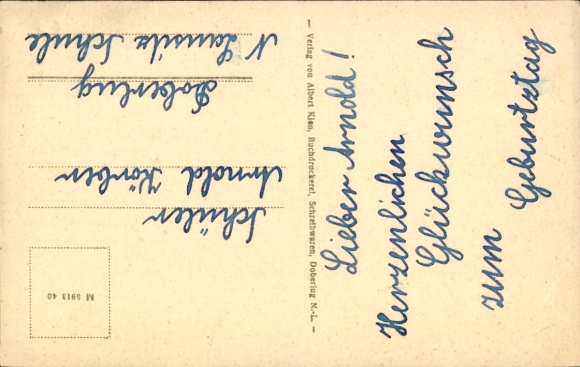 Lieber Arnold!
Herzenlichen
Glückwunsch
zum Geburtztag
Schüler
Arnold Körber
Doberlug
N Lausitz Schule
— Verlag von Albert Klan, Buchdruckerei, Schreibwaren, Doberlug N.-L. —
M 5913 40